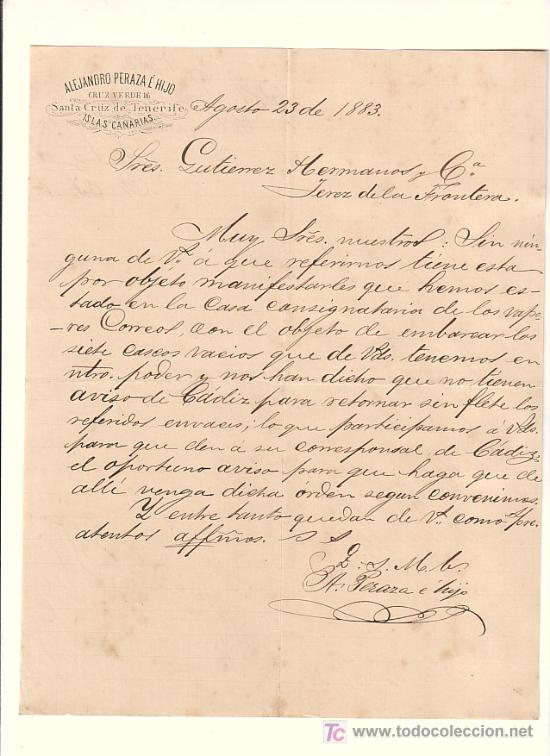 ALEJANDRO PERAZA É HIJO
CRUZ VERDE 16
Santa Cruz de Tenerife
ISLAS CANARIAS
Agosto 23 de 1883.
Sres. Gutierrez Hermanos y Cª
Jerez de la Frontera.
Muy Sres. nuestros: Sin nin-
guna de V. a que referirnos tiene esta
por objeto manifestarles que hemos es-
tado en la Casa consignataria de los vapo-
res Correos, con el objeto de embarcar los
siete cascos vacios que de Vds. tenemos en
ntro. poder y nos han dicho que no tienen
aviso de Cádiz para retornar sin flete los
referidos envaces; lo que participamos á Vds.
para que den á su corresponsal de Cádiz
el oportuno aviso para que haga que de
allí venga dicha órden segun convenimos.
Y entre tanto quedan de V. como siempre
atentos affmos. S S
Q. S. M. B.
A. Peraza é hijo
TC www.todocoleccion.net